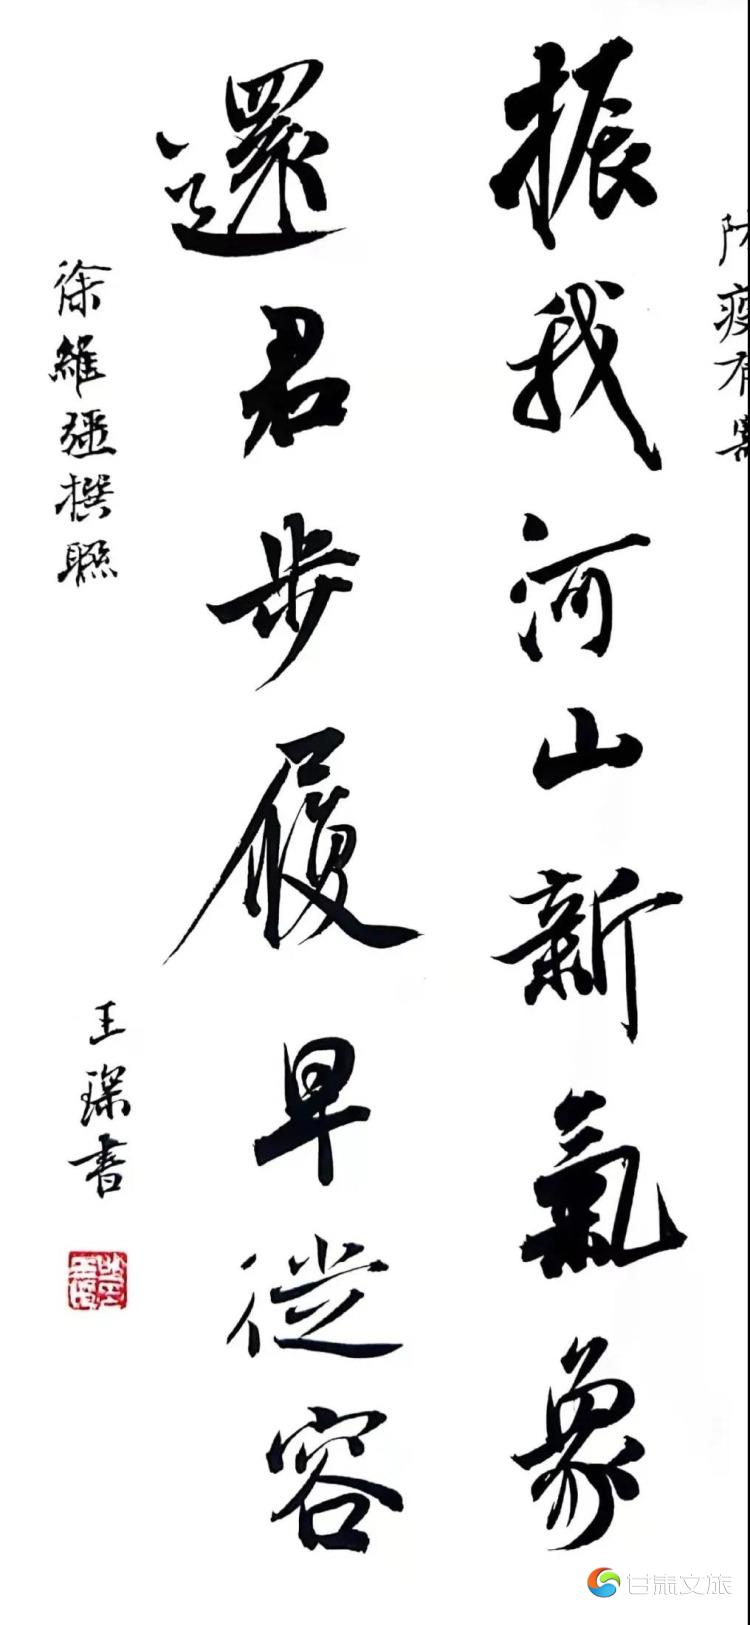 防疫有
振我河山新氣象
還君步履早從容
徐維彊撰聯
王琛書
甘肃文旅